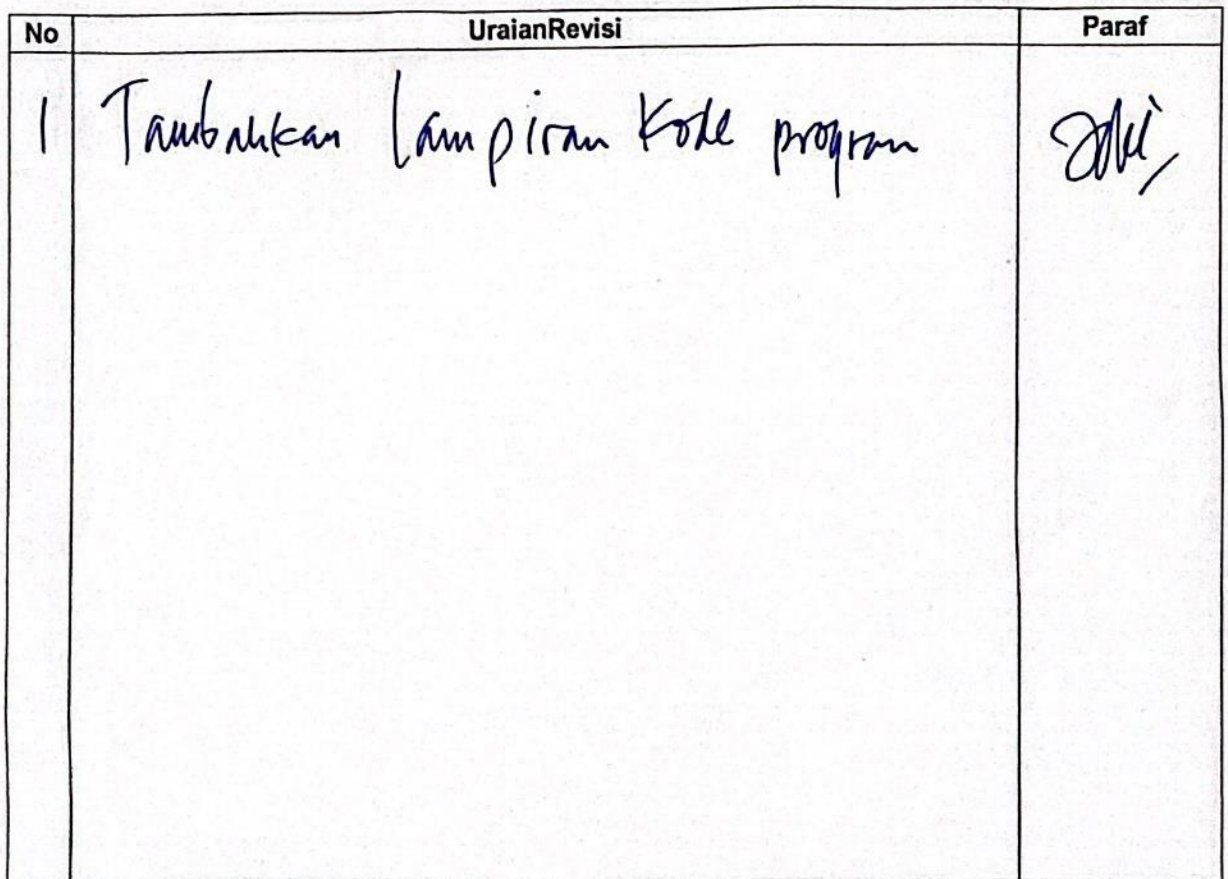 No UraianRevisi Paraf
1 Tambahkan Lampiran Kode program